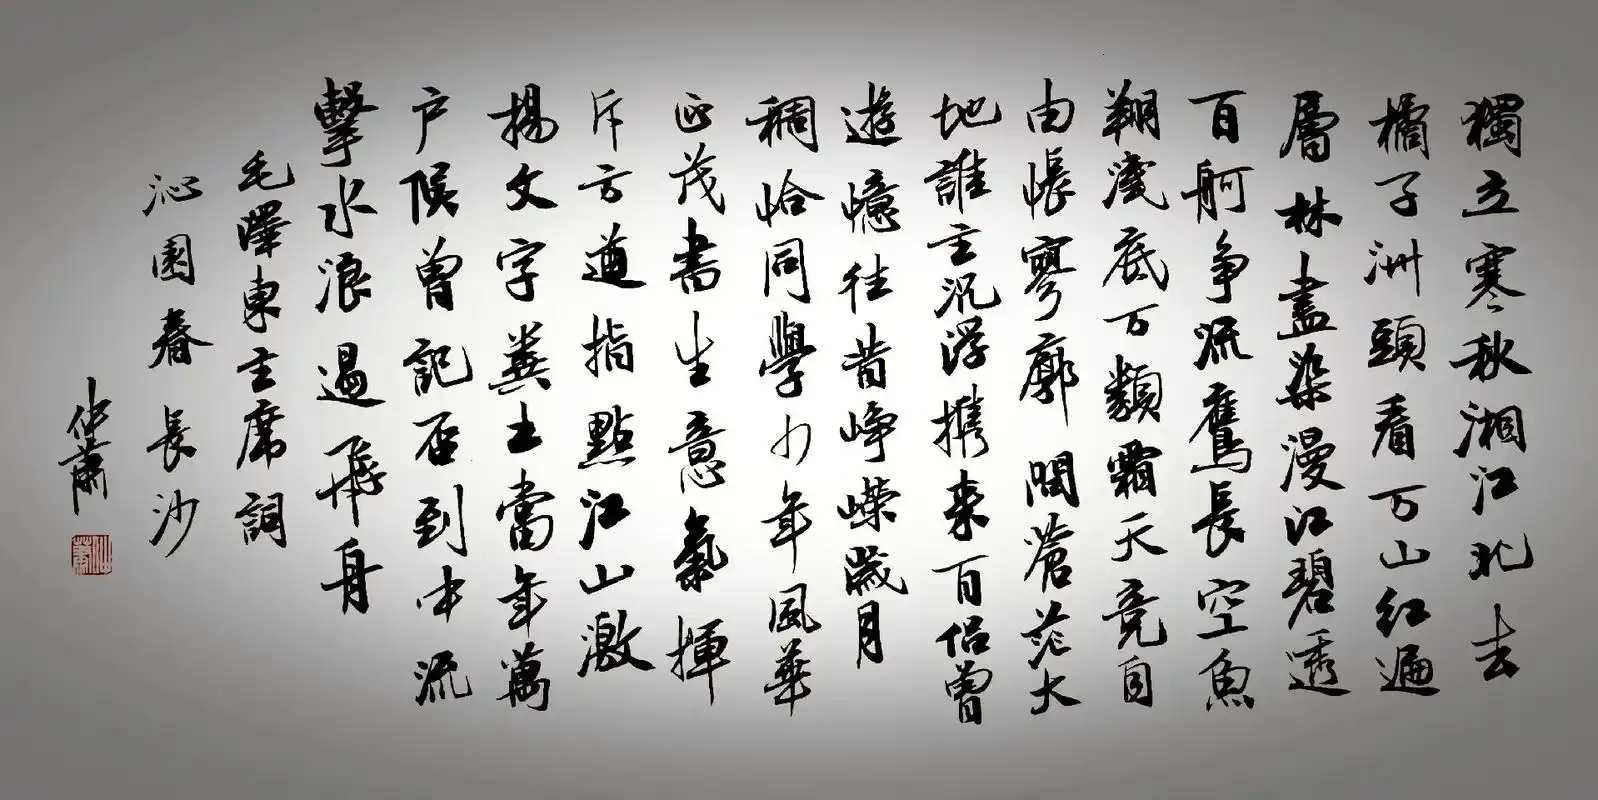 獨立寒秋湘江北去
橘子洲頭看万山红遍
層林盡染漫江碧透
百舸争流鷹長空魚
翔淺底万類霜天竞自
由悵寥廓問蒼茫大
地誰主沉浮携来百侣曾
遊憶往昔峥嵘歲月
稠恰同學少年風華
正茂書生意氣揮
斥方遒指點江山激
揚文字粪土當年萬
户侯曾記否到中流
擊水浪遏飛舟
毛澤東主席詞
沁園春長沙